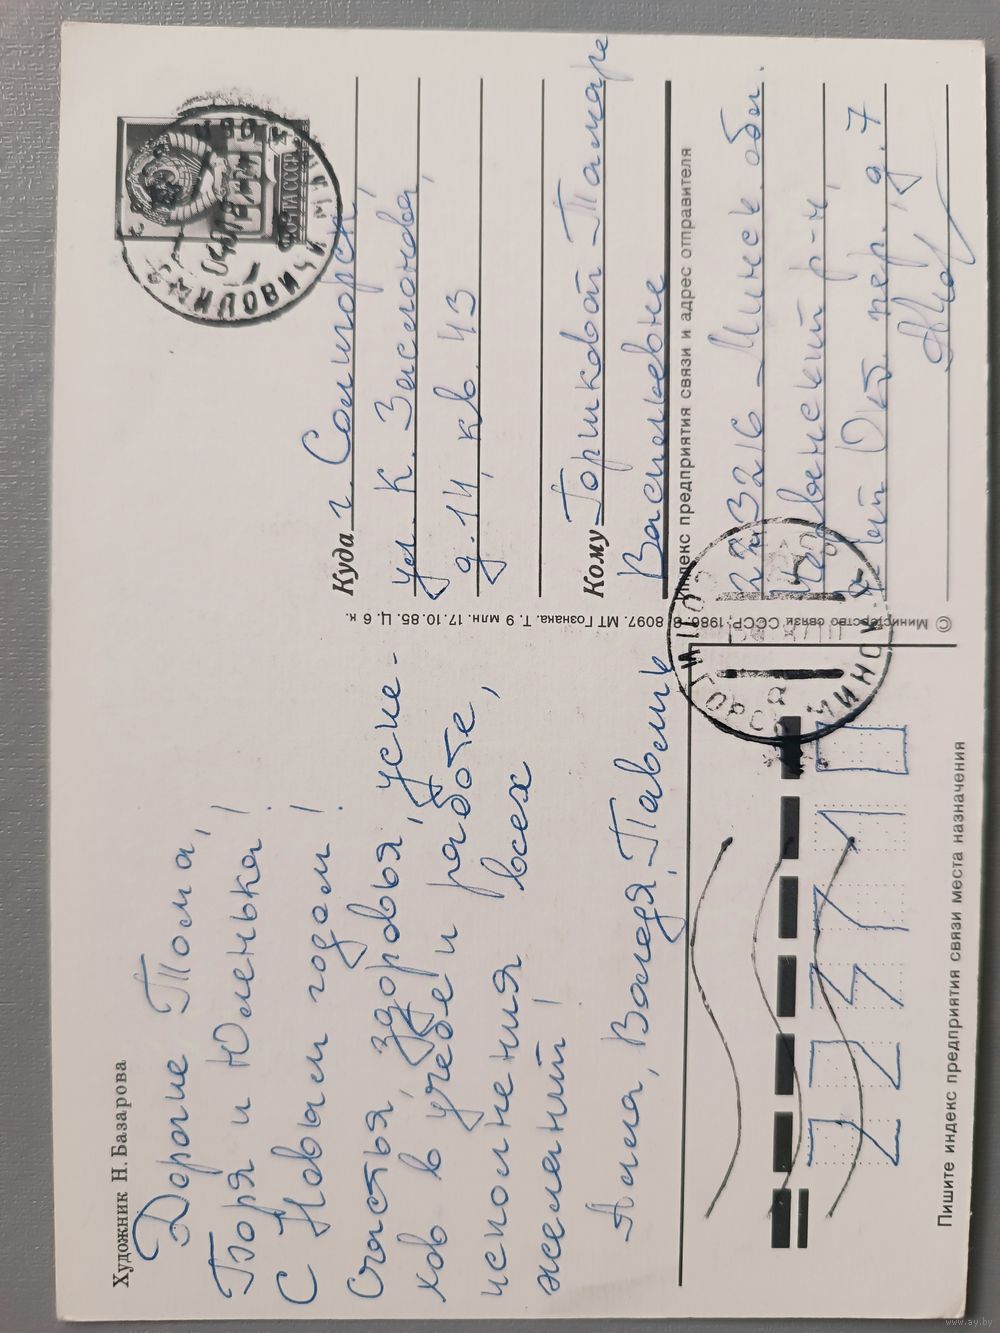 Художник Н. Базарова
Дорогие Тома,
Боря и Юленька!
С Новым годом!
Счастья, здоровья, успе-
хов в учебе и работе,
исполнения всех
желаний!
Алла, Володя, Павлик
ПОЧТА СССР
Куда г. Солигорск,
ул. К. Заслонова,
д. 14, кв. 43
Кому Горшковой Тамаре
Васильевне
Индекс предприятия связи и адрес отправителя
223216 Минск. обл.
Червенский р-н,
Окт. пер., д. 7
© Министерство связи СССР, 1986. 8097. МТ Гознака. Т. 9 млн. 17.10.85. Ц. 6 к.
Пишите индекс предприятия связи места назначения
www.ay.by